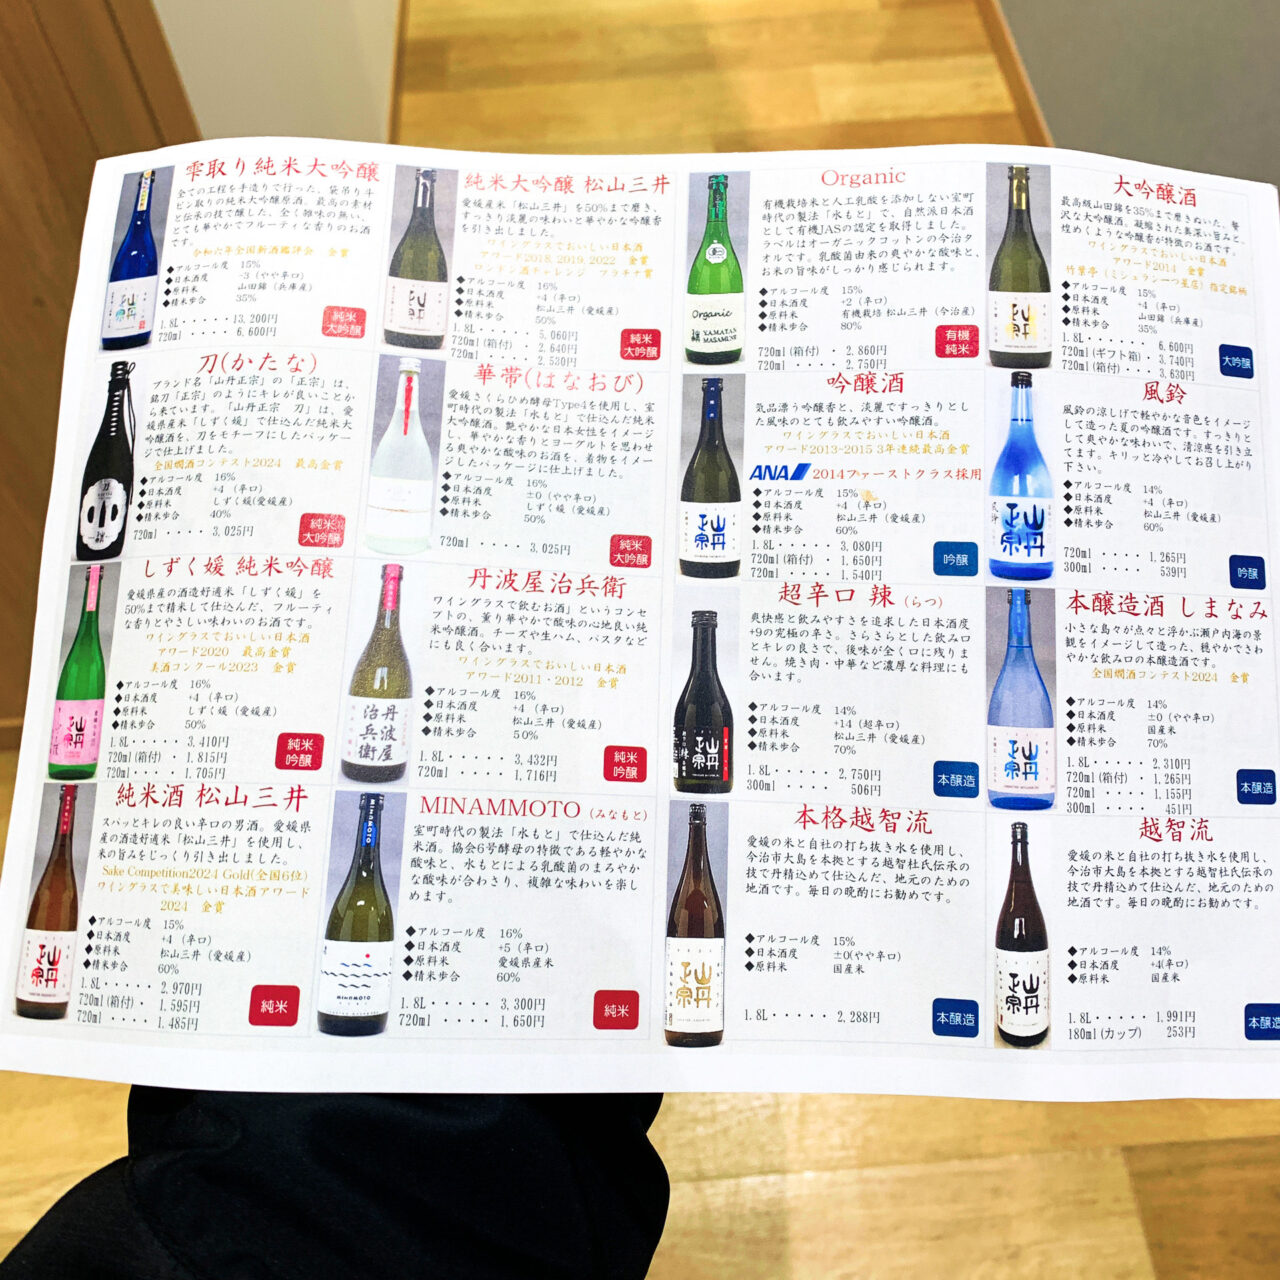 雫取り純米大吟醸
全ての工程を手造りで行った、袋吊り斗
ビン取りの純米大吟醸原酒。最高の素材
と伝承の技で醸した、全く雑味の無い、
とても華やかでフルーティな香りのお酒
です。
令和六年全国新酒鑑評会 金賞
◆アルコール度 15%
◆日本酒度 -3（やや辛口）
◆原料米 山田錦（兵庫産）
◆精米歩合 35%
1.8L・・・・・13,200円
720ml ・・・・ 6,600円
純米
大吟醸
純米大吟醸 松山三井
愛媛産米「松山三井」を50%まで磨き、
すっきり淡麗の味わいと華やかな吟醸香
を引き出しました。
ワイングラスでおいしい日本酒
アワード2018, 2019, 2022 金賞
ワントン酒チャレンジ プラチナ賞
◆アルコール度 16%
◆日本酒度 +4（辛口）
◆原料米 松山三井（愛媛産）
◆精米歩合 50%
1.8L・・・・・ 5,060円
720ml(箱付) ・ 2,640円
720ml ・・・・ 2,530円
純米
大吟醸
Organic
有機栽培米と人工乳酸を添加しない室町
時代の製法「水もと」で、自然派日本酒
として有機JASの認定を取得しました。
ラベルはオーガニックコットンの今治タ
オルです。乳酸菌由来の爽やかな酸味と、
お米の旨味がしっかり感じられます。
◆アルコール度 15%
◆日本酒度 +2（辛口）
◆原料米 有機栽培 松山三井（今治産）
◆精米歩合 80%
720ml(箱付) ・ 2,860円
720ml ・・・・ 2,750円
有機
純米
Organic
YAMATAN
MASAMUNE
大吟醸酒
最高級山田錦を35%まで磨きぬいた、贅
沢な大吟醸酒。凝縮された奥深い旨みと、
煌めくような吟醸香が特徴のお酒です。
ワイングラスでおいしい日本酒
アワード2014 金賞
竹葉亭（ミシュラン一つ星店）指定銘柄
◆アルコール度 15%
◆日本酒度 +4（辛口）
◆原料米 山田錦（兵庫産）
◆精米歩合 35%
1.8L・・・・・ 6,600円
720ml(ギフト箱)・ 3,740円
720ml(箱付)・・・ 3,630円
大吟醸
刀(かたな)
ブランド名「山丹正宗」の「正宗」は、
銘刀「正宗」のようにキレが良いことか
ら来ています。「山丹正宗 刀」は、愛
媛県産米「しずく媛」で仕込んだ純米大
吟醸酒を、刀をモチーフにしたパッケー
ジで仕上げました。
全国燗酒コンテスト2024 最高金賞
◆アルコール度 16%
◆日本酒度 +4（辛口）
◆原料米 しずく媛(愛媛産)
◆精米歩合 40%
720ml ・・・・ 3,025円
純米
大吟醸
華帯(はなおび)
愛媛さくらひめ酵母Type4を使用し、室
町時代の製法「水もと」で仕込んだ純米
大吟醸酒。艶やかな日本女性をイメージ
し、華やかな香りとヨーグルトを思わせ
る爽やかな酸味のお酒を、着物をイメー
ジしたパッケージに仕上げました。
◆アルコール度 16%
◆日本酒度 ±0（やや辛口）
◆原料米 しずく媛（愛媛産）
◆精米歩合 50%
720ml ・・・・ 3,025円
純米
大吟醸
吟醸酒
気品漂う吟醸香と、淡麗ですっきりとし
た風味のとても飲みやすい吟醸酒。
ワイングラスでおいしい日本酒
アワード2013~2015 3年連続最高金賞
ANA 2014ファーストクラス採用
◆アルコール度 15%
◆日本酒度 +4（辛口）
◆原料米 松山三井（愛媛産）
◆精米歩合 60%
1.8L・・・・・ 3,080円
720ml(箱付)・・ 1,650円
720ml ・・・・ 1,540円
吟醸
風鈴
風鈴の涼しげで軽やかな音色をイメージ
して造った夏の吟醸酒です。すっきりと
して爽やかな味わいで、清涼感を引き立
てます。キリッと冷やしてお召し上がり
下さい。
◆アルコール度 14%
◆日本酒度 +4（辛口）
◆原料米 松山三井（愛媛産）
◆精米歩合 60%
720ml ・・・・ 1,265円
300ml ・・・・ 539円
吟醸
しずく媛 純米吟醸
愛媛県産の酒造好適米「しずく媛」を
50%まで精米して仕込んだ、フルーティ
な香りとやさしい味わいのお酒です。
ワイングラスでおいしい日本酒
アワード2020 最高金賞
美酒コンクール2023 金賞
◆アルコール度 16%
◆日本酒度 +4（辛口）
◆原料米 しずく媛（愛媛産）
◆精米歩合 50%
1.8L・・・・・ 3,410円
720ml(箱付)・ 1,815円
720ml・・・・ 1,705円
純米
吟醸
丹波屋治兵衛
「ワイングラスで飲むお酒」というコンセ
プトの、薫り華やかで酸味の心地良い純
米吟醸酒。チーズや生ハム、パスタなど
にも良く合います。
ワイングラスでおいしい日本酒
アワード2011・2012 金賞
◆アルコール度 16%
◆日本酒度 +4（辛口）
◆原料米 松山三井（愛媛産）
◆精米歩合 50%
1.8L・・・・・ 3,432円
720ml ・・・・ 1,716円
純米
吟醸
丹波屋
治兵衛
超辛口 辣（らつ）
爽快感と飲みやすさを追求した日本酒度
+9の究極の辛さ。さらさらとした飲み口
とキレの良さで、後味が全く口に残りま
せん。焼き肉・中華など濃厚な料理にも
合います。
◆アルコール度 14%
◆日本酒度 +14（超辛口）
◆原料米 松山三井（愛媛産）
◆精米歩合 70%
1.8L・・・・・ 2,750円
300ml ・・・・ 506円
本醸造
本醸造酒 しまなみ
小さな島々が点々と浮かぶ瀬戸内海の景
観をイメージして造った、穏やかでさわ
やかな飲み口の本醸造酒です。
全国燗酒コンテスト2024 金賞
◆アルコール度 14%
◆日本酒度 ±0（やや辛口）
◆原料米 国産米
◆精米歩合 70%
1.8L・・・・・ 2,310円
720ml(箱付)・ 1,265円
720ml ・・・・ 1,155円
300ml ・・・・ 451円
本醸造
純米酒 松山三井
スパッとキレの良い辛口の男酒。愛媛県
産の酒造好適米「松山三井」を使用し、
米の旨みをじっくり引き出しました。
Sake Competition2024 Gold(全国6位)
ワイングラスで美味しい日本酒アワード
2024 金賞
◆アルコール度 15%
◆日本酒度 +4（辛口）
◆原料米 松山三井（愛媛産）
◆精米歩合 60%
1.8L・・・・・ 2,970円
720ml(箱付)・ 1,595円
720ml ・・・・ 1,485円
純米
MINAMMOTO（みなもと）
室町時代の製法「水もと」で仕込んだ純
米酒。協会6号酵母の特徴である軽やかな
酸味と、水もとによる乳酸菌のまろやか
な酸味が合わさり、複雑な味わいを楽し
めます。
◆アルコール度 16%
◆日本酒度 +5（辛口）
◆原料米 愛媛県産米
◆精米歩合 60%
1.8L・・・・・ 3,300円
720ml ・・・・ 1,650円
純米
MINAMOTO
本格越智流
愛媛の米と自社の打ち抜き水を使用し、
今治市大島を本拠とする越智杜氏伝承の
技で丹精込めて仕込んだ、地元のための
地酒です。毎日の晩酌にお勧めです。
◆アルコール度 15%
◆日本酒度 ±0(やや辛口)
◆原料米 国産米
1.8L・・・・・ 2,288円
本醸造
越智流
愛媛の米と自社の打ち抜き水を使用し、
今治市大島を本拠とする越智杜氏伝承の
技で丹精込めて仕込んだ、地元のための
地酒です。毎日の晩酌にお勧めです。
◆アルコール度 14%
◆日本酒度 +4(辛口)
◆原料米 国産米
1.8L・・・・・ 1,991円
180ml(カップ) 253円
本醸造